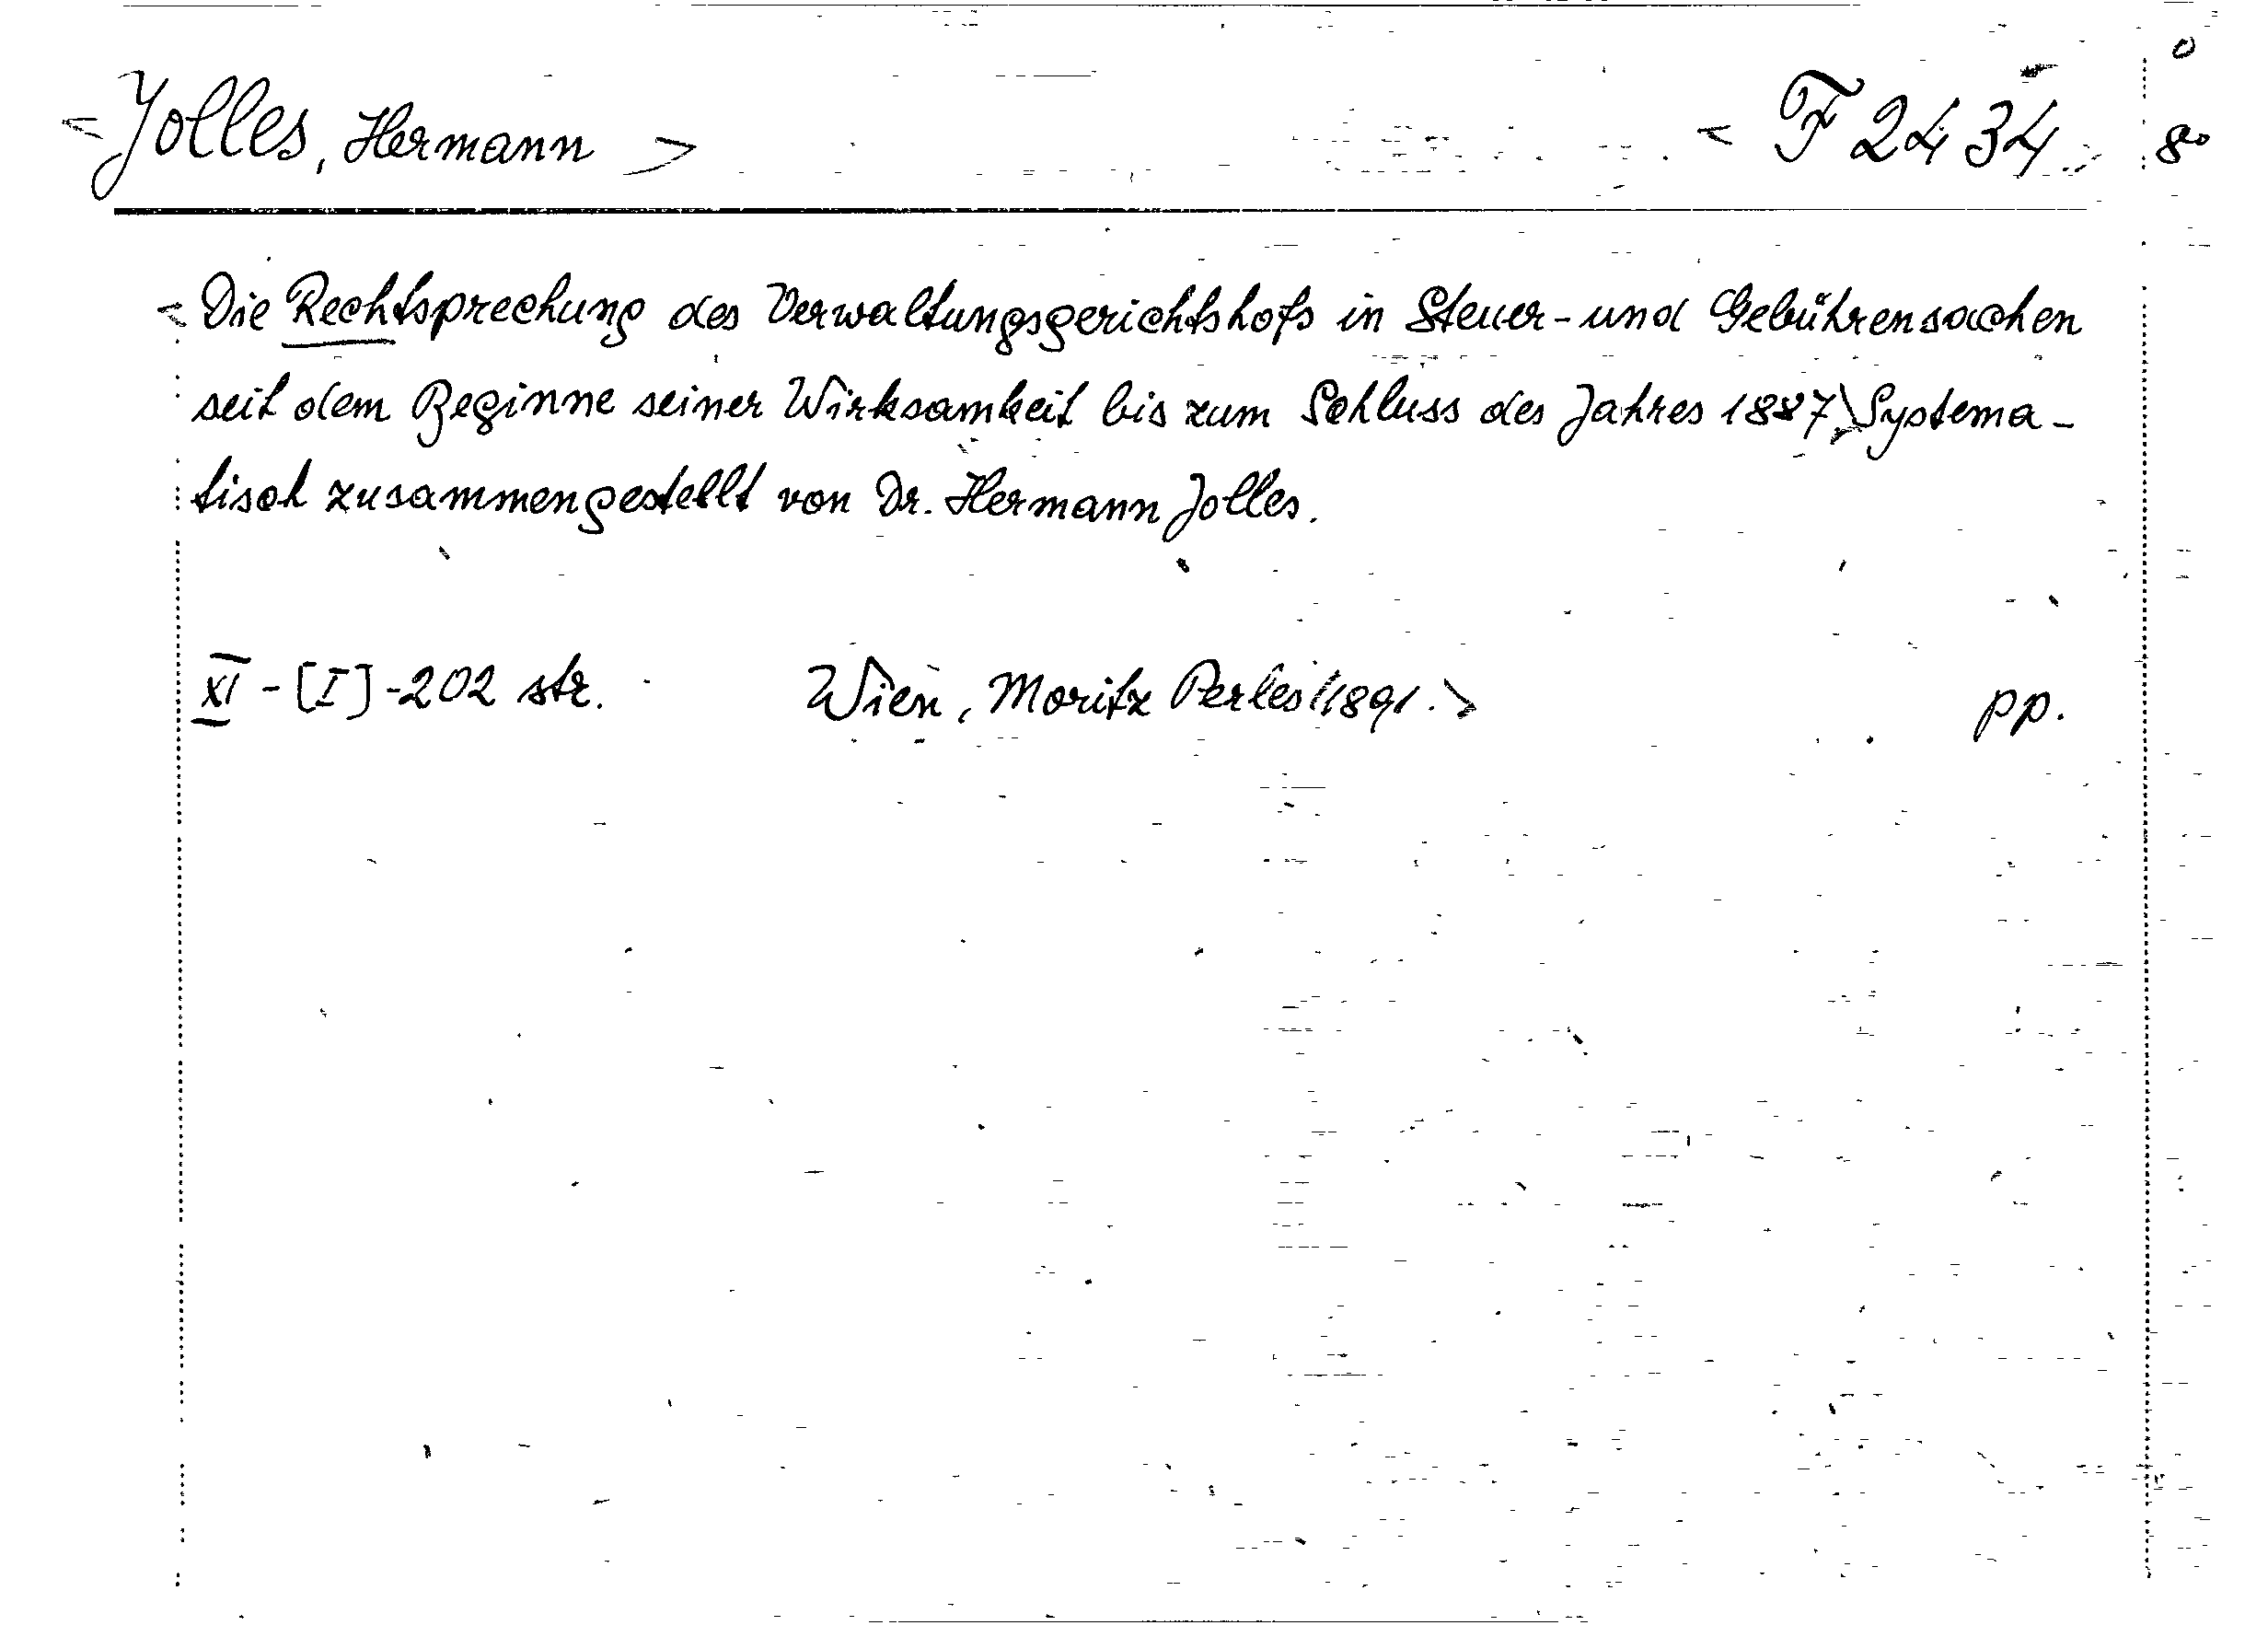 <Jolles, Hermann> <F 2434> 8°
<Die Rechtsprechung des Verwaltungsgerichtshofs in Steuer- und Gebührensachen
seit dem Beginne seiner Wirksamkeit bis zum Schluss des Jahres 1887> Systema-
tisch zusammengestellt von Dr. Hermann Jolles.
XI-[I]-202 str. Wien, Moritz Perles 1891.> pp.